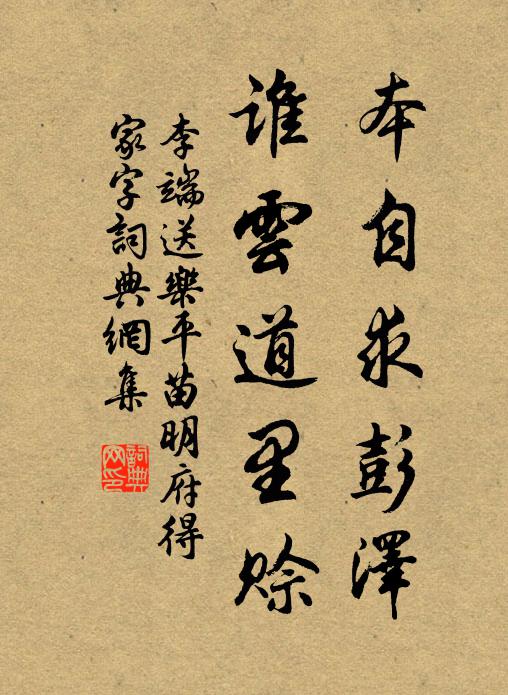 本自求彭澤
誰雲道里賒
李端送樂平苗明府得
家字詞典網集
詞典網印